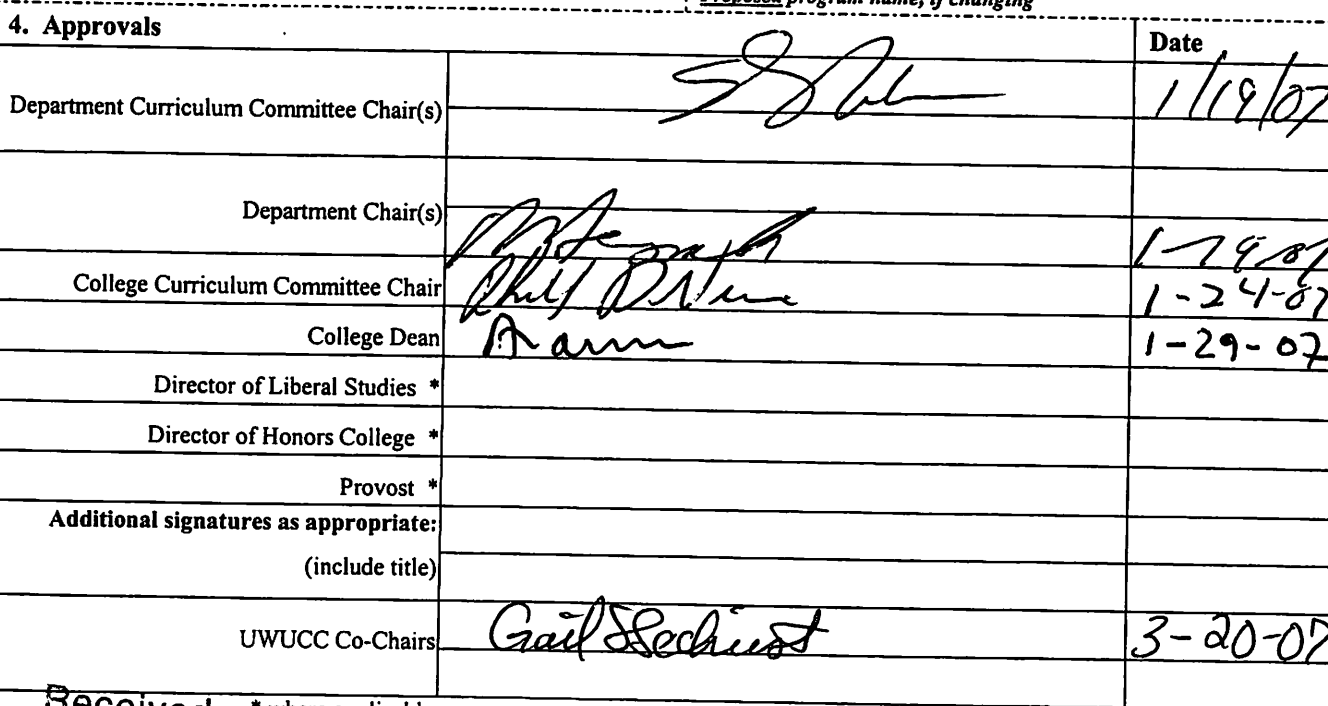 Proposed program name, if changing
4. Approvals Date
Department Curriculum Committee Chair(s) 1/19/07
Department Chair(s)
College Curriculum Committee Chair 1-24-07
College Dean 1-29-07
Director of Liberal Studies *
Director of Honors College *
Provost *
Additional signatures as appropriate:
(include title)
UWUCC Co-Chairs Gail Sechrist 3-20-07
Received * where applicable